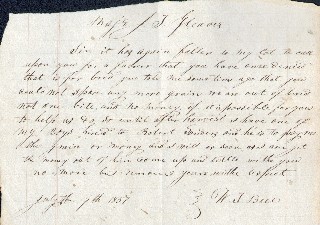 Maj. J. T. Gleaver
Sir it has again fallen to my lot to call
upon you for a favour that you have once denied
that is for bred you told me sometime ago that you
could not spare any more grain we are out of bred
not one bite and no money if it is possible for you
to help us do so until after harvest I have one of
my Boys hired to Robert and he is to pay me
in grain or money and I will as soon as I can get
the money out of him come up and settle with you
no more but remains yours with respect
July the 9th 1837
W. T.